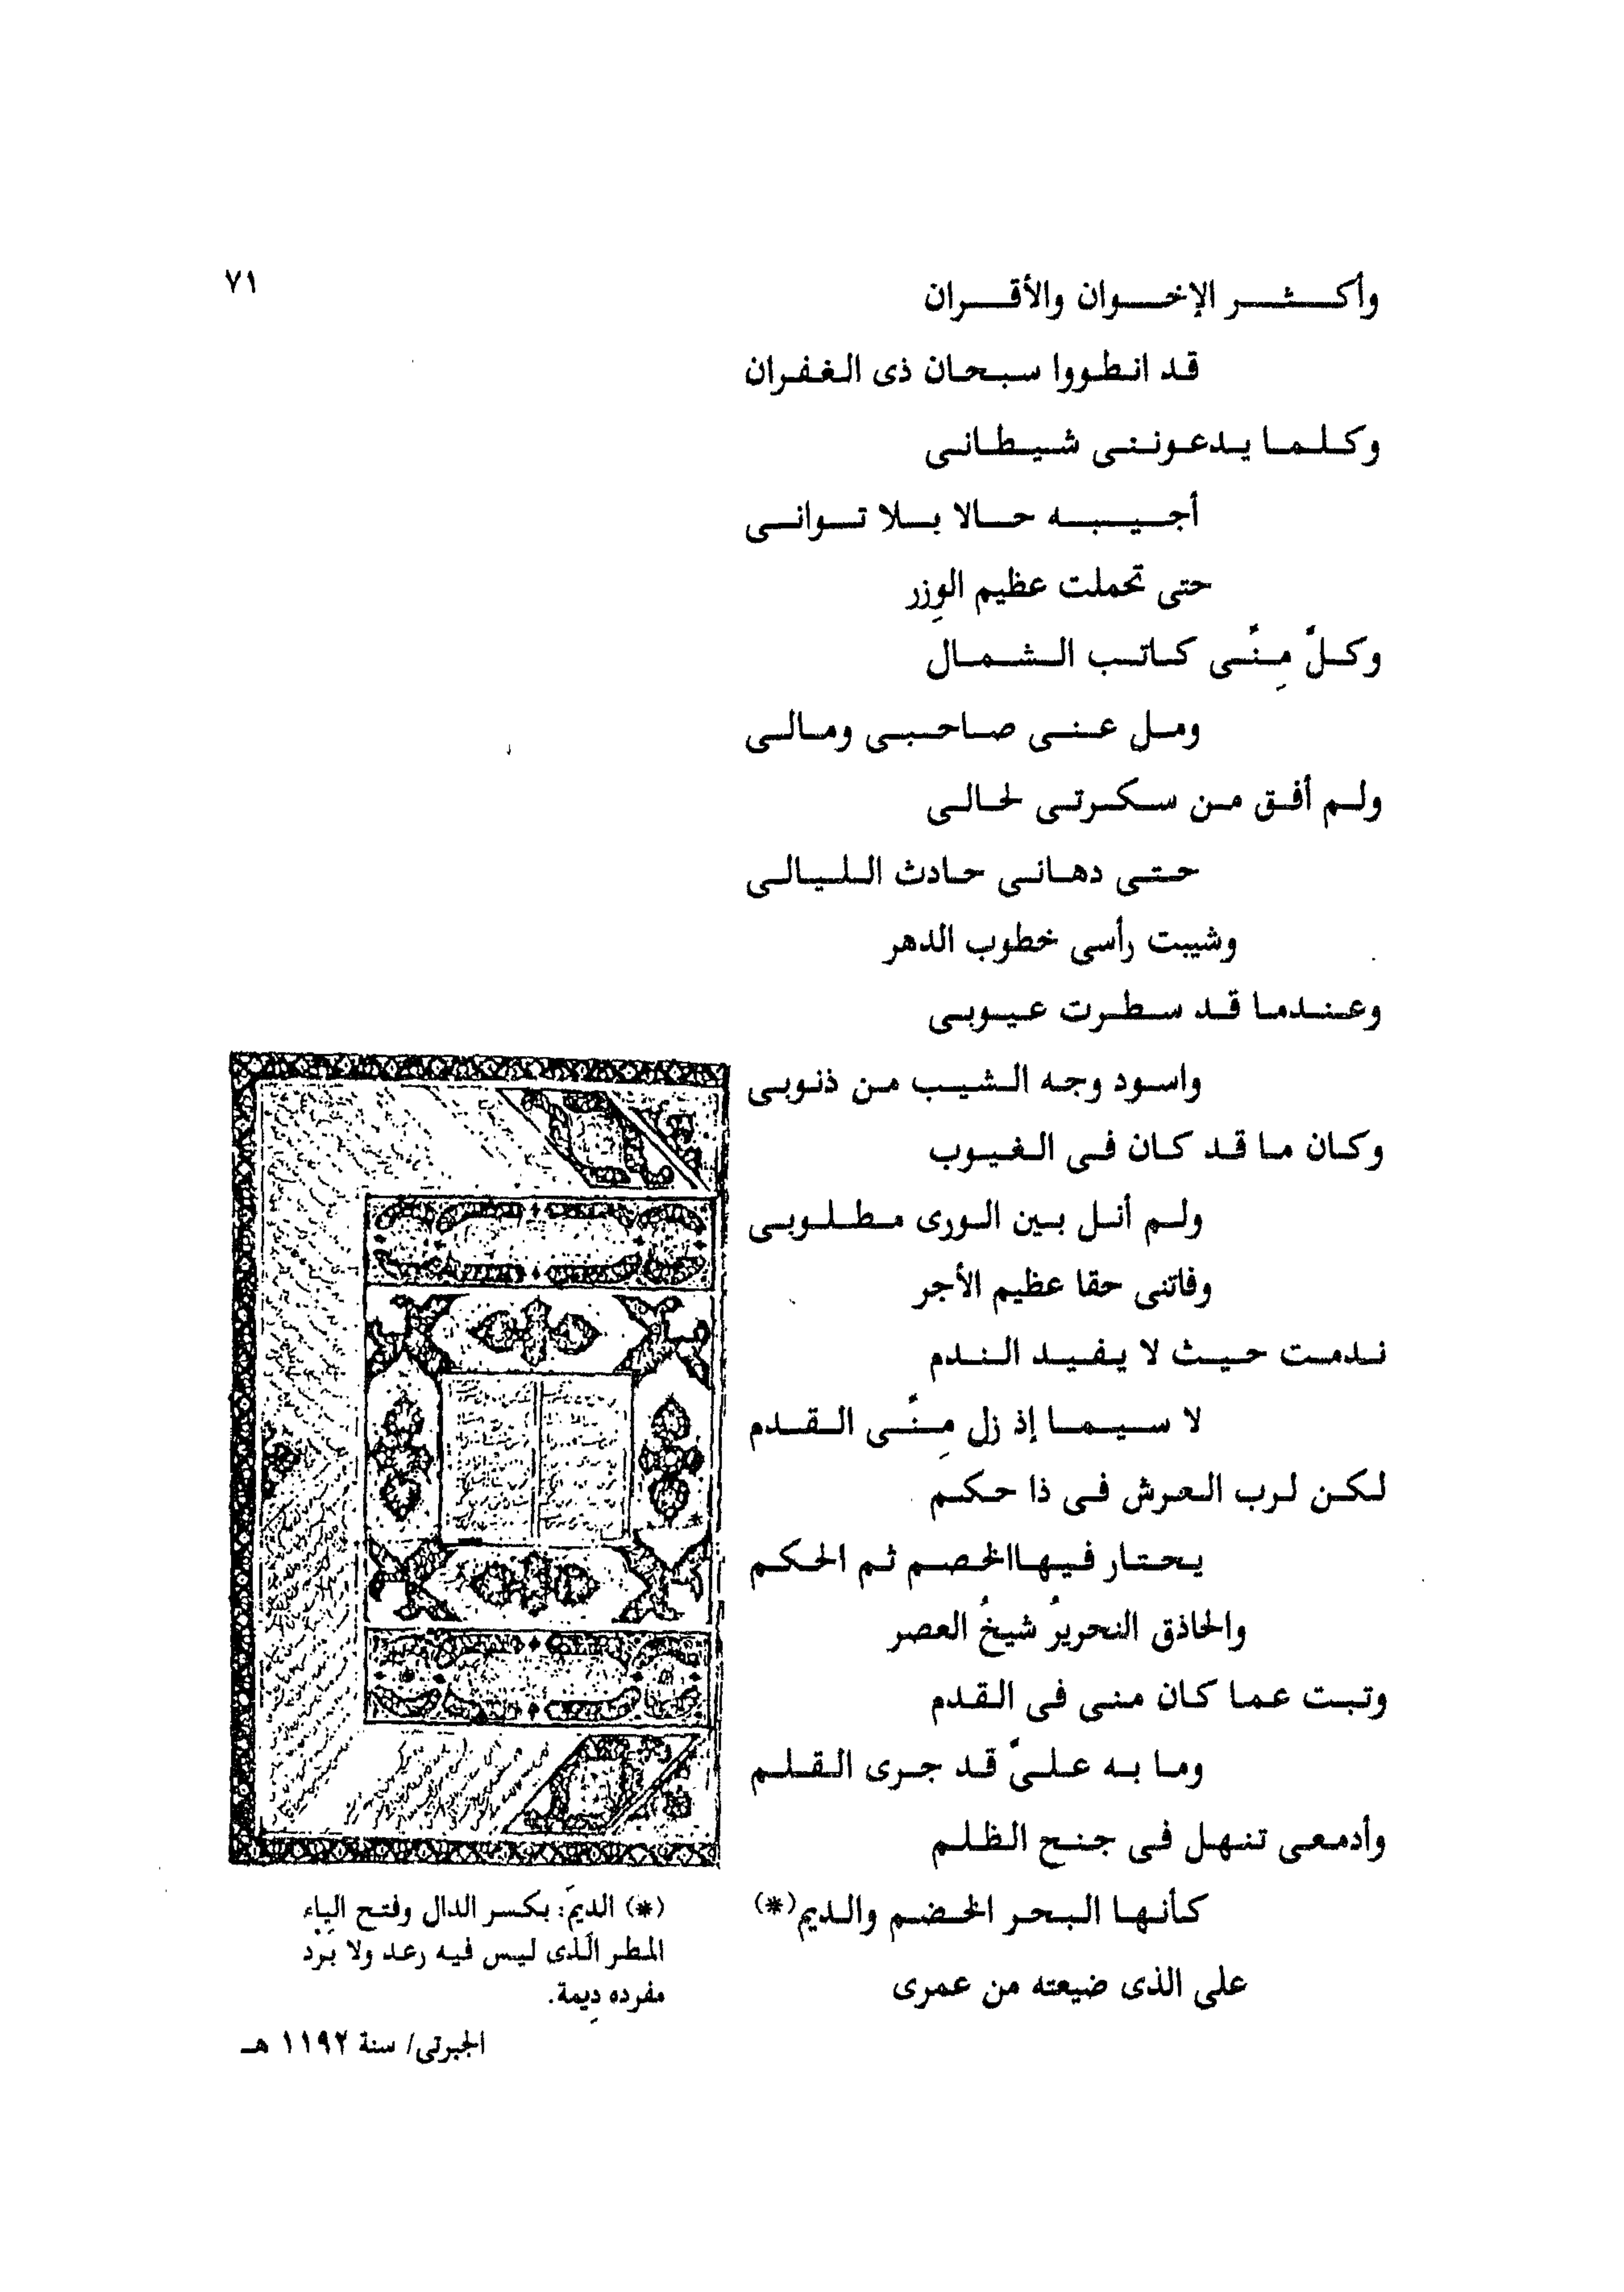 ٧١
وأكثر الإخوان والأقران
قد انطووا سبحان ذى الغفران
وكلما يدعوننى شيطانى
أجيبه حالا بلا توانى
حتى تحملت عظيم الوِزر
وكلَّ مِنَّى كاتب الشمال
ومل عنى صاحبى ومالى
ولم أفق من سكرتى لحالى
حتى دهانى حادث الليالى
وشيبت رأسى خطوب الدهر
وعندما قد سطرت عيوبى
واسود وجه الشيب من ذنوبى
وكان ما قد كان فى الغيوب
ولم أنل بين الورى مطلوبى
وفاتنى حقا عظيم الأجر
ندمت حيث لا يفيد الندم
لا سيما إذ زل مِنَّى القدم
لكن لرب العرش فى ذا حكم
يحتار فيهاالخصم ثم الحكم
والحاذق النحريرُ شيخُ العصر
وتبت عما كان منى فى القدم
وما به علىَّ قد جرى القلم
وأدمعى تنهل فى جنح الظلم
كأنها البحر الخضم والديم(*)
على الذى ضيعته من عمرى
(*) الدِيَم: بكسر الدال وفتح الياء
المطر الذى ليس فيه رعد ولا برد
مفرده دِيمة.
الجبرتى/ سنة ١١٩٢ هـ